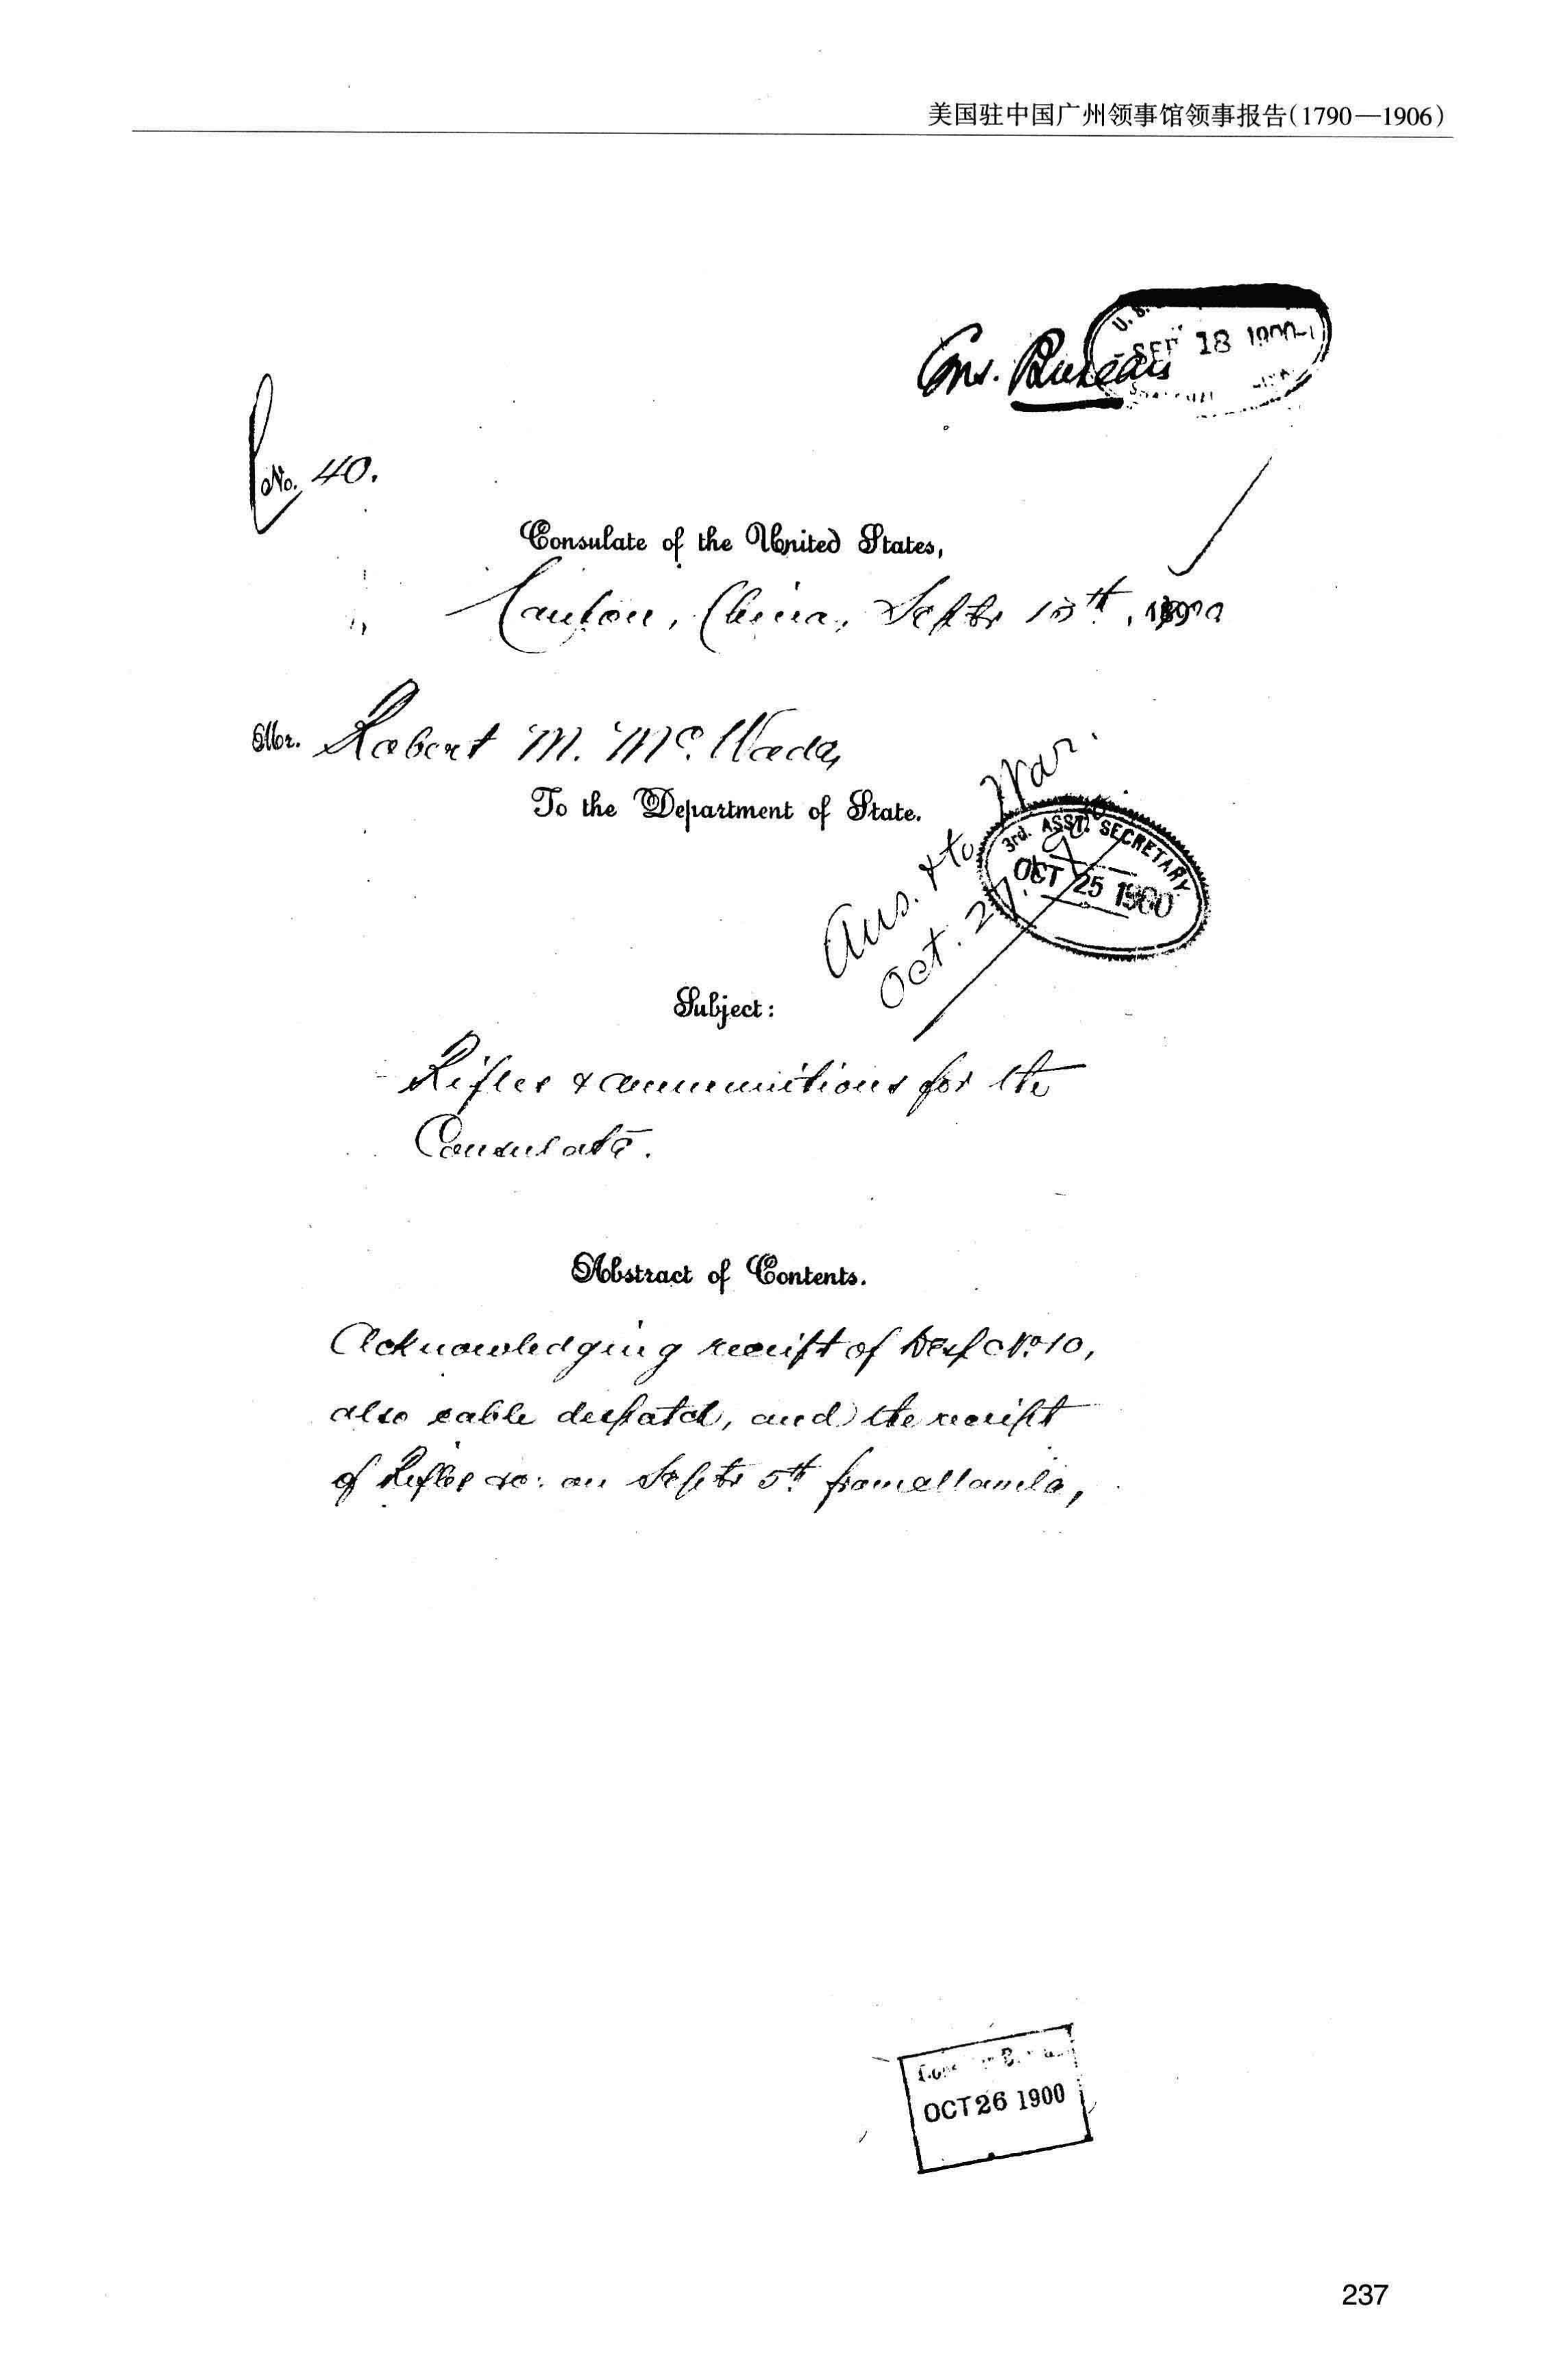 美国驻中国广州领事馆领事报告(1790—1906)
Cons. Bureau
U. S.
SEP 18 1900
No. 40.
Consulate of the United States,
Canton, China, Septr 13th, 1900
Mr. Robert M. McWade,
To the Department of State.
Ans. & to War.
Oct. 27.
3rd. ASST. SECRETARY
OCT 25 1900
Subject:
Rifles & ammunitions for the
Consulate.
Abstract of Contents.
Acknowledging receipt of Desp No. 10,
also cable despatch, and the receipt
of Rifles &c: on Septr 5th from Manila,
OCT 26 1900
237